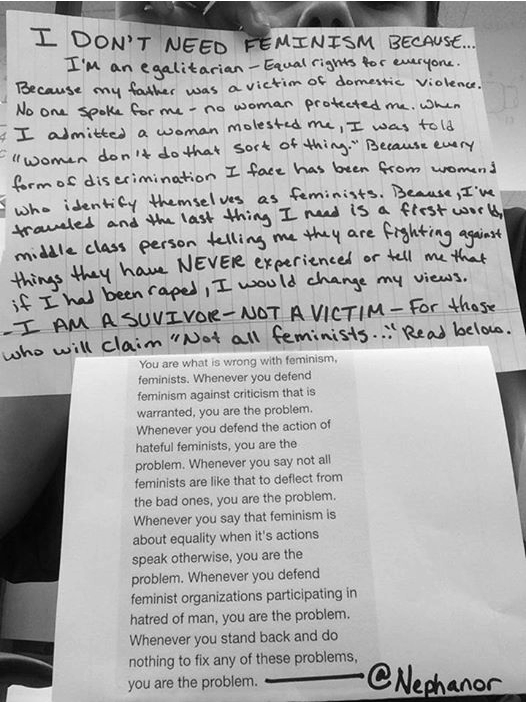 I DON'T NEED FEMINISM BECAUSE...
I'M an egalitarian - Equal rights for everyone.
Because my father was a victim of domestic violence.
No one spoke for me - no woman protected me. When
I admitted a woman molested me, I was told
"women don't do that sort of thing." Because every
form of discrimination I face has been from women
who identify themselves as feminists. Because, I've
traveled and the last thing I need is a first world,
middle class person telling me they are fighting against
things they have NEVER experienced or tell me that
if I had been raped, I would change my views.
- I AM A SUVIVOR - NOT A VICTIM - For those
who will claim "Not all feminists..." Read below.
You are what is wrong with feminism,
feminists. Whenever you defend
feminism against criticism that is
warranted, you are the problem.
Whenever you defend the action of
hateful feminists, you are the
problem. Whenever you say not all
feminists are like that to deflect from
the bad ones, you are the problem.
Whenever you say that feminism is
about equality when it's actions
speak otherwise, you are the
problem. Whenever you defend
feminist organizations participating in
hatred of man, you are the problem.
Whenever you stand back and do
nothing to fix any of these problems,
you are the problem. @Nephanor